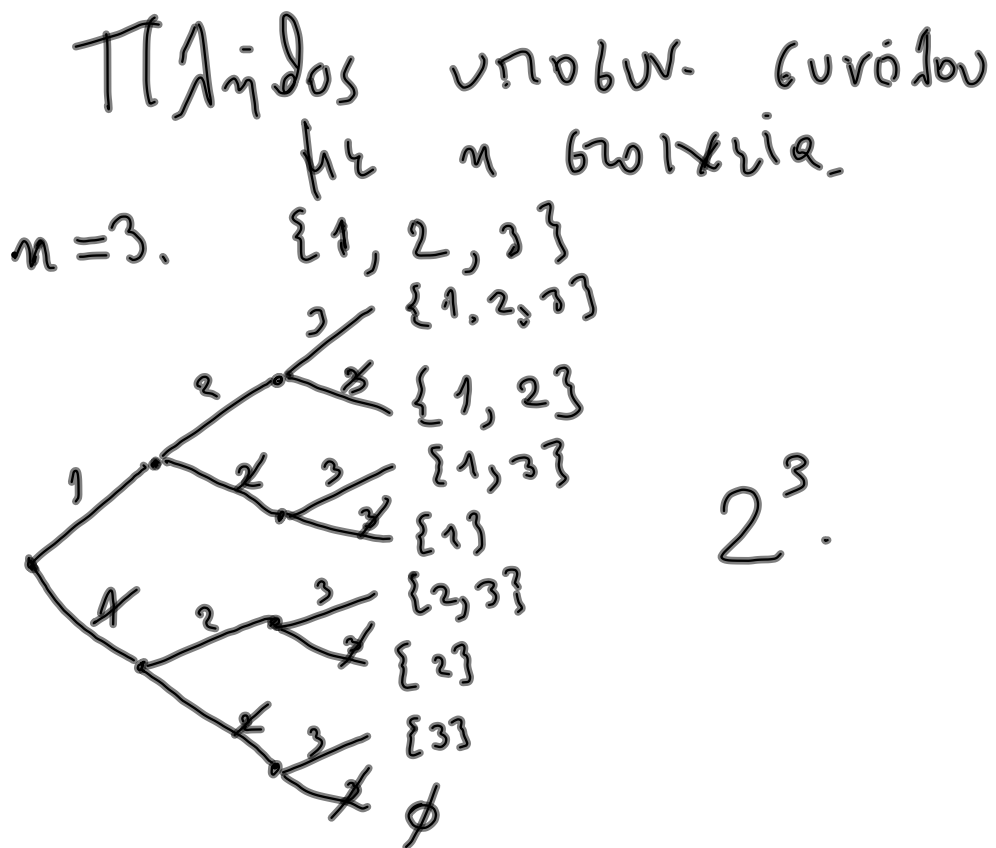 Πλήθος υποσυν. συνόλου
με n στοιχεία.
n = 3. {1, 2, 3}
3 {1, 2, 3}
2 3̸ {1, 2}
1 2̸ 3 {1, 3}
3̸ {1}
2³.
1̸ 2 3 {2, 3}
3̸ {2}
2̸ 3 {3}
3̸ ∅